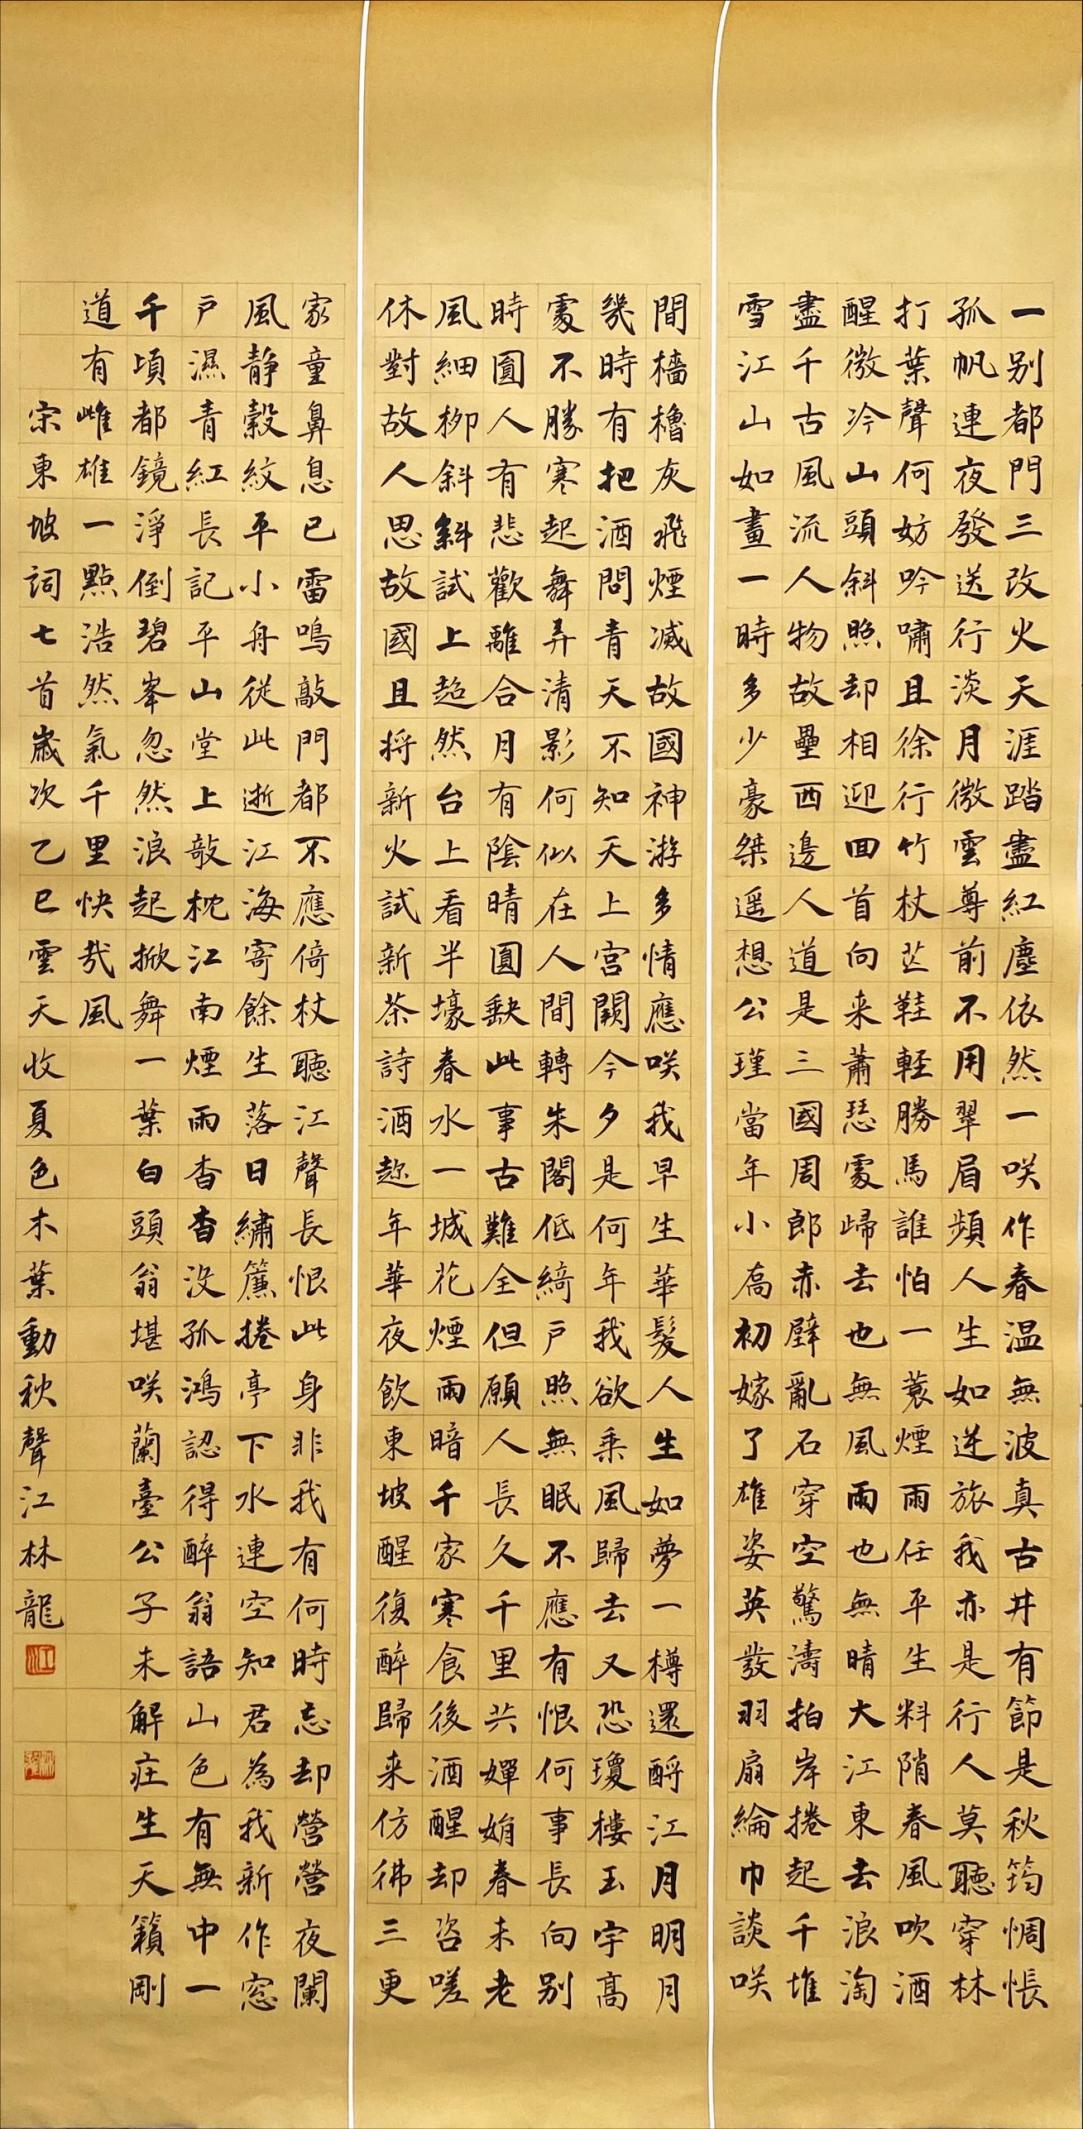 一别都門三改火天涯踏盡紅塵依然一咲作春温無波真古井有節是秋筠惆悵
孤帆連夜發送行淡月微雲尊前不用翠眉頻人生如逆旅我亦是行人莫聽穿林
打葉聲何妨吟嘯且徐行竹杖芒鞋軽勝馬誰怕一蓑煙雨任平生料陗春風吹酒
醒微冷山頭斜照却相迎回首向来蕭瑟處歸去也無風雨也無晴大江東去浪淘
盡千古風流人物故壘西邊人道是三國周郎赤壁亂石穿空驚濤拍岸捲起千堆
雪江山如畫一時多少豪桀遥想公瑾當年小喬初嫁了雄姿英發羽扇綸巾談咲
間檣櫓灰飛煙滅故國神游多情應咲我早生華髮人生如夢一樽還酹江月明月
幾時有把酒問青天不知天上宮闕今夕是何年我欲乘風歸去又恐瓊樓玉宇高
處不勝寒起舞弄清影何似在人間轉朱閣低綺户照無眠不應有恨何事長向别
時圓人有悲歡離合月有陰晴圓缺此事古難全但願人長久千里共嬋娟春未老
風細柳斜斜試上超然台上看半壕春水一城花煙雨暗千家寒食後酒醒却咨嗟
休對故人思故國且将新火試新茶詩酒趂年華夜飲東坡醒復醉歸来仿彿三更
家童鼻息已雷鳴敲門都不應倚杖聽江聲長恨此身非我有何時忘却營營夜闌
風静縠紋平小舟從此逝江海寄餘生落日繡簾捲亭下水連空知君為我新作窓
户濕青紅長記平山堂上敧枕江南煙雨杳杳没孤鴻認得醉翁語山色有無中一
千頃都鏡淨倒碧峯忽然浪起掀舞一葉白頭翁堪咲蘭臺公子未解庄生天籟剛
道有雌雄一點浩然氣千里快哉風
宋東坡詞七首歲次乙巳雲天收夏色木葉動秋聲江林龍